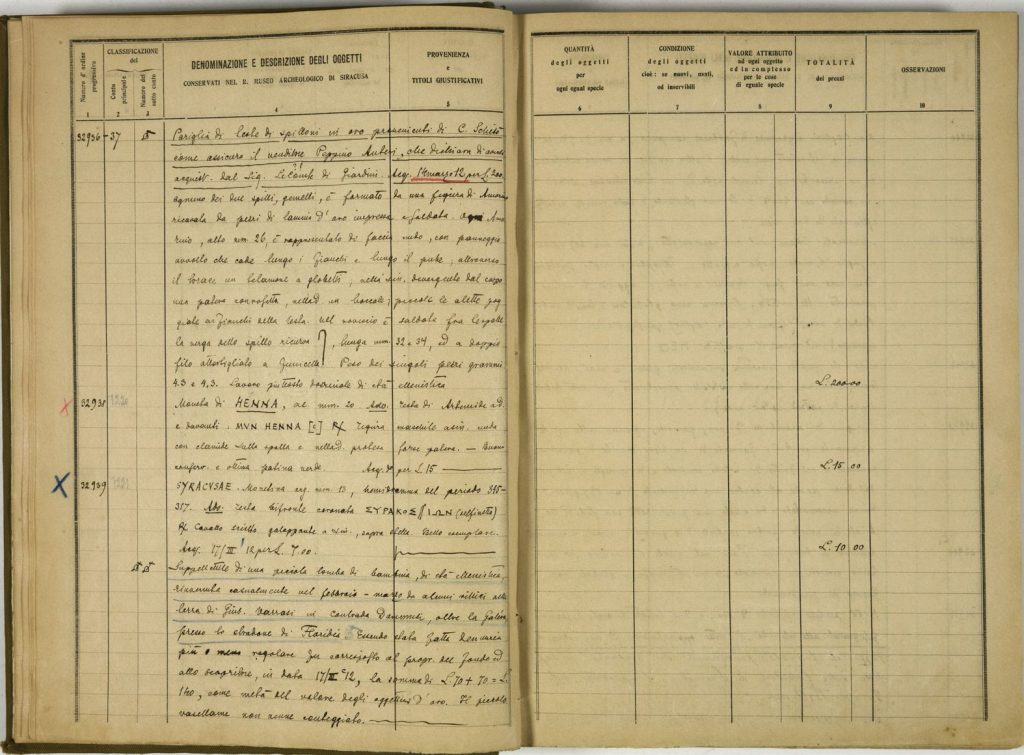 Numero d'ordine progressivo
CLASSIFICAZIONE
del
Conto principale
Numero del sotto conto
DENOMINAZIONE E DESCRIZIONE DEGLI OGGETTI
CONSERVATI NEL R. MUSEO ARCHEOLOGICO DI SIRACUSA
PROVENIENZA
e
TITOLI GIUSTIFICATIVI
1 2 3 4 5
QUANTITÀ
degli oggetti
per
ogni egual specie
CONDIZIONE
degli oggetti
cioè: se nuovi, usati,
od inservibili
VALORE ATTRIBUITO
ad ogni oggetto
ed in complesso
per le cose
di eguale specie
TOTALITÀ
dei prezzi
OSSERVAZIONI
6 7 8 9 10
32936-37 Pariglia di teste di spilloni in oro provenienti di C. Schisò
come assicura il venditore Peppino Auteri, che dichiara di averli
acquist. dal Sig. LeComte di Giardini. Acq. marzo 12 per L. 200
ognuno dei due spilli, gemelli, è formato da una figura di Amorino
ricavata da pezzi di lamina d'oro impressa e saldata. Ogni Amo
rino, alto mm. 26, è rappresentato di faccia nudo, con panneggio
avvolto che cade lungo i fianchi e lungo il pube; attraverso
il torace un balamone a globetti; nella sin. divergente dal corpo
una patera, nella d. un boccale; piccole le alette pog
giate ai fianchi della testa. Nel rovescio è saldata fra le spalle
la verga dello spillo ricurva, lunga mm. 32 e 34, ed a doppio
filo attortigliato a funicella. Peso dei singoli pezzi grammi
4.3 e 4.3. Lavoro piuttosto dozzinale di età ellenistica
L. 200 00
32938 1220 Moneta di HENNA, ae mm. 20 Ado. testa di Artemide a d.
e davanti. MVN HENNA [e] R/ Figura maschile a sin. nuda
con clamide sulla spalla e nella d. protesa forse patera. — Buona
conserv. e ottima patina verde. Acq. per L. 15
L. 15 00
32939 1221 SYRACVSAE. Monetina arg. mm. 13, del periodo 345-
317. Ado. Testa bifronte coronata ΣΥΡΑΚΟΣΙΩΝ (delfinetto)
R/ Cavallo sciolto galoppante a sin., sopra stella. Bello esemplare.
Acq. 17/III 12 per L. 00.
L. 10 00
Suppellettile di una piccola tomba di bambina, di età ellenistica,
rinvenuta casualmente nel febbraio - marzo da alcuni villici nella
terra di Gius. Varrasi in contrada, oltre la
presso lo stradone di Floridia. Essendo stata fatta denuncia
più o meno regolare fu corrisposto al propr. del fondo ed
allo scopritore, in data 17/III 12, la somma di L. 70 + 70 = L.
140, come metà del valore degli oggettini d'oro. Il piccolo
vasellame non venne conteggiato.